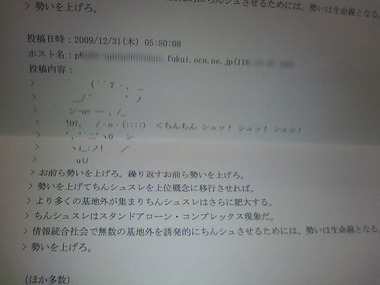 > 勢いを上げろ。
投稿日時：2009/12/31(木) 05:50:08
ホスト名：p fukui.ocn.ne.jp(118
投稿内容：
＜ちんちん シュッ！ シュッ！ シュッ！
> お前ら勢いを上げろ。繰り返すお前ら勢いを上げろ。
> 勢いを上げてちんシュスレを上位概念に移行させれば、
> より多くの基地外が集まりちんシュスレはさらに肥大する。
> ちんシュスレはスタンドアローン・コンプレックス現象だ。
> 情報統合社会で無数の基地外を誘発的にちんシュさせるためには、勢いは生命線となる。
> 勢いを上げろ。
(ほか多数)